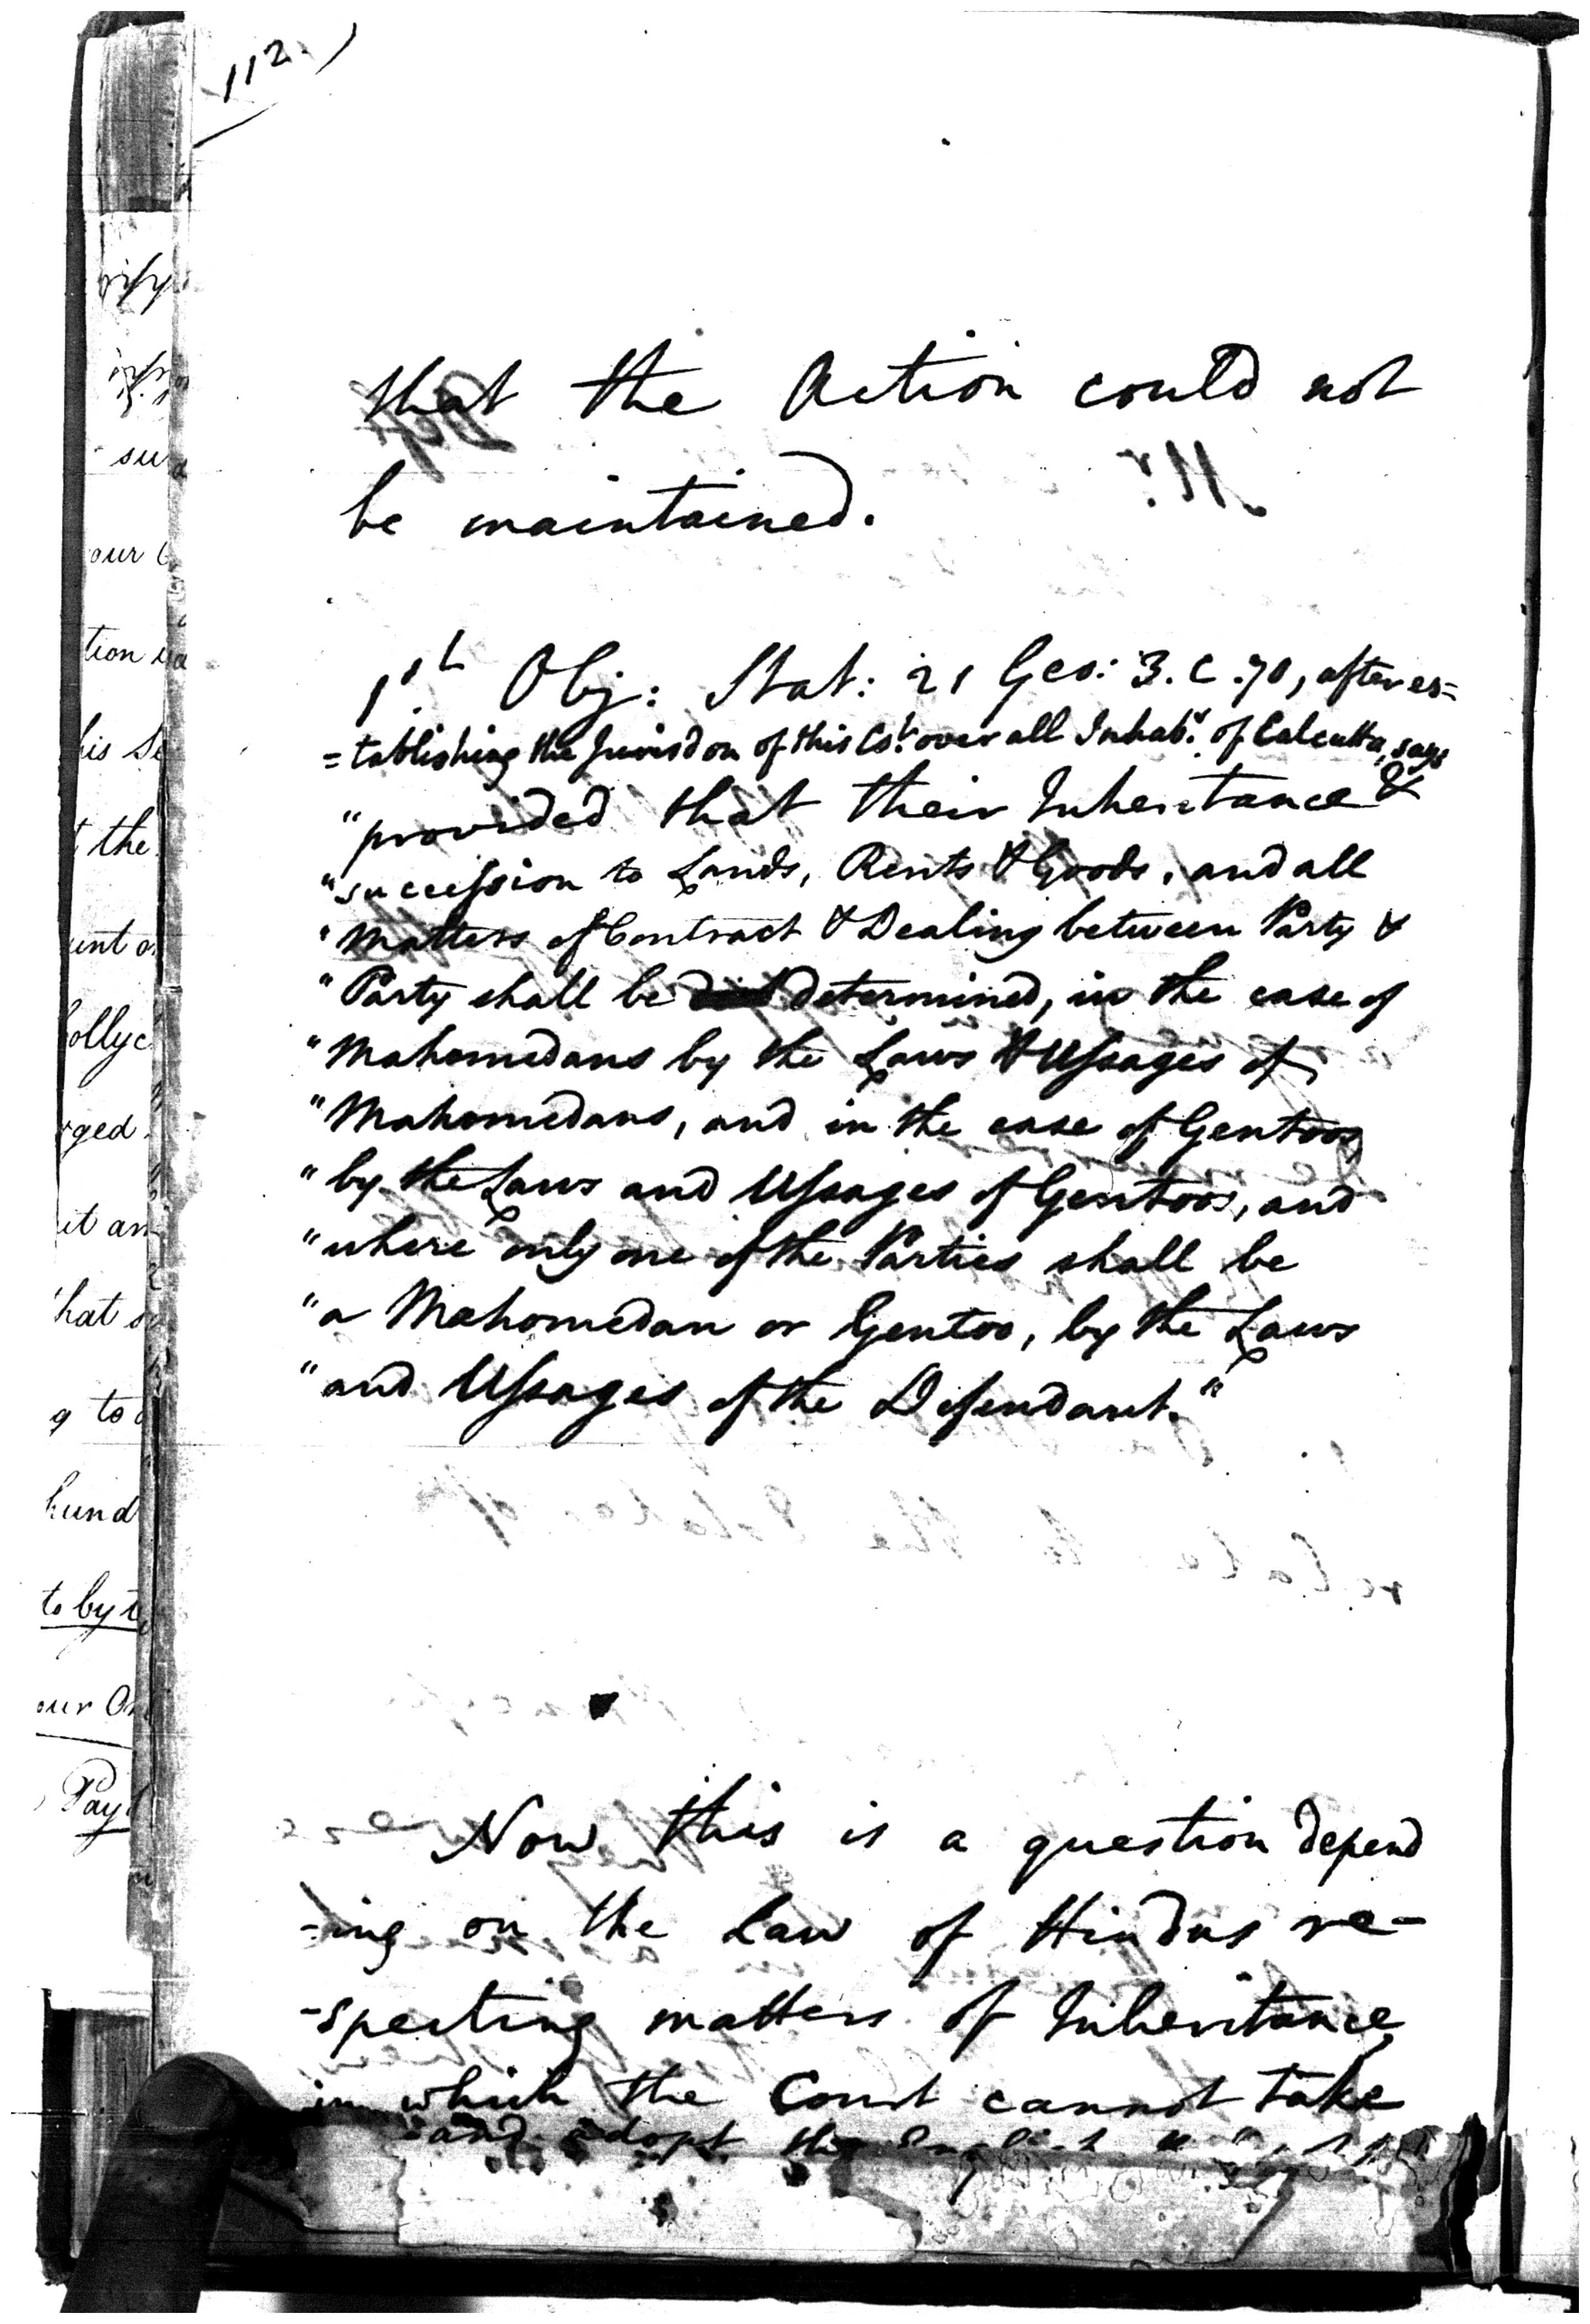 112.)
that the Action could not
be maintained.
1st Obj: Stat: 21 Geo: 3. C. 70, after es=
=tablishing the Jurisdon of this Ct. over all Inhabs. of Calcutta, says
"provided that their Inheritance &
"succession to Lands, Rents & Goods, and all
"Matters of Contract & Dealing between Party &
"Party shall be determined, in the case of
"Mahomedans by the Laws & Usages of
"Mahomedans, and in the case of Gentoos
"by the Laws and Usages of Gentoos, and
"where only one of the Parties shall be
"a Mahomedan or Gentoo, by the Laws
"and Usages of the Defendant."
Now this is a question depend
-ing on the Law of Hindus re-
-specting matters of Inheritance,
in which the Court cannot take
and adopt the English